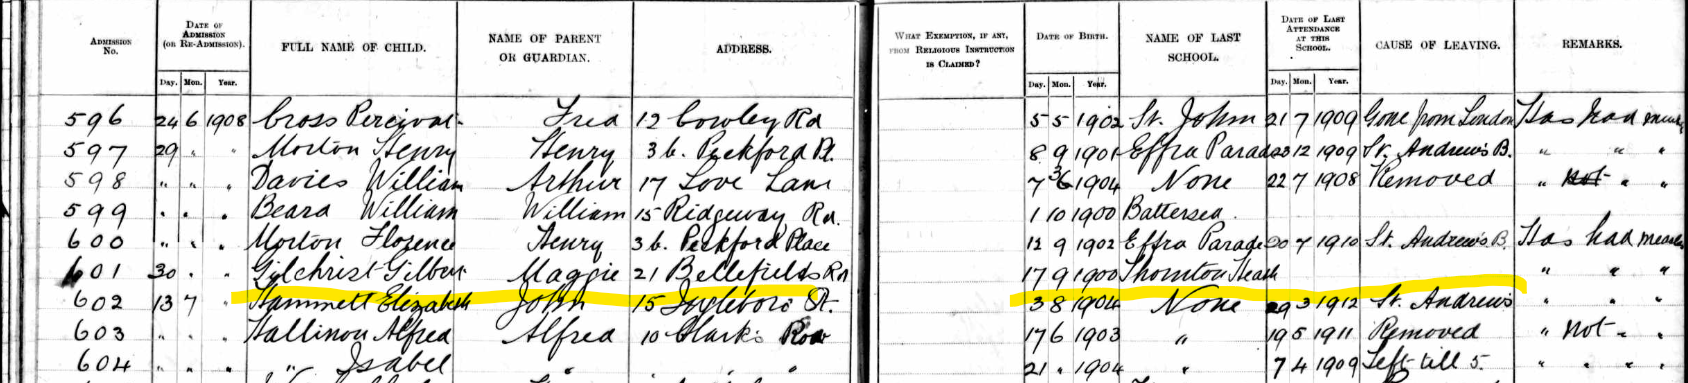 ADMISSION No. DATE OF ADMISSION (OR RE-ADMISSION). FULL NAME OF CHILD. NAME OF PARENT OR GUARDIAN. ADDRESS. WHAT EXEMPTION, IF ANY, FROM RELIGIOUS INSTRUCTION IS CLAIMED? DATE OF BIRTH. NAME OF LAST SCHOOL. DATE OF LAST ATTENDANCE AT THIS SCHOOL. CAUSE OF LEAVING. REMARKS.
Day. Mon. Year. Day. Mon. Year. Day. Mon. Year.
596 24 6 1908 Cross Percival Fred 12 Cowley Rd 5 5 1902 St. John 21 7 1909 Gone from London Has had measles
597 29 " " Morton Henry Henry 3b. Peckford Pl. 8 9 1901 Effra Parade 12 1909 St. Andrew's B. " " "
598 " " " Davies William Arthur 17 Love Lane 7 1904 None 22 7 1908 Removed " not " "
599 " " " Beard William William 15 Ridgeway Rd. 1 10 1900 Battersea
600 " " " Morton Florence Henry 3b. Peckford Place 12 9 1902 Effra Parade 7 1910 St. Andrew's B. Has had measles
601 30 " " Gilchrist Gilbert Maggie 21 Bellefields Rd 17 9 1900 Thornton Heath " " "
602 13 7 " Hammett Elizabeth John 15 Ingleboro St. 3 8 1904 None 29 3 1912 St. Andrew's " " "
603 " " " Hallinon Alfred Alfred 10 Clark's Row 17 6 1903 " 19 5 1911 Removed " not " "
604 " " " " Isabel " " " " 21 " 1904 " 7 4 1909 Left till 5. " " " "